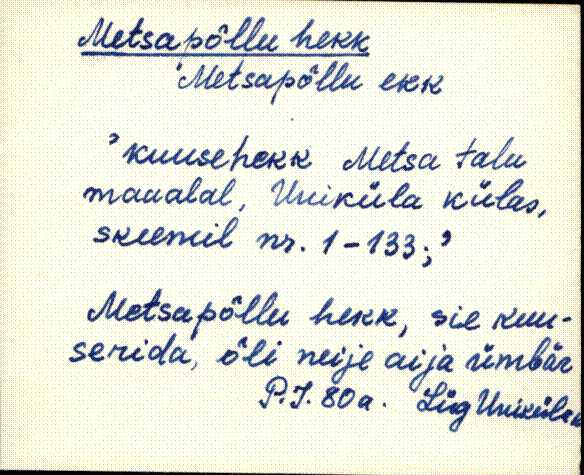 Metsapõllu hekk
'Metsapõllu ekk
'kuusehekk Metsa talu
maaalal, Uniküla külas,
skeemil nr. 1-133;'
Metsapõllu hekk, sie kuu-
serida, õli neije aija ümbär
P.J. 80 a. Lüg Uniküla